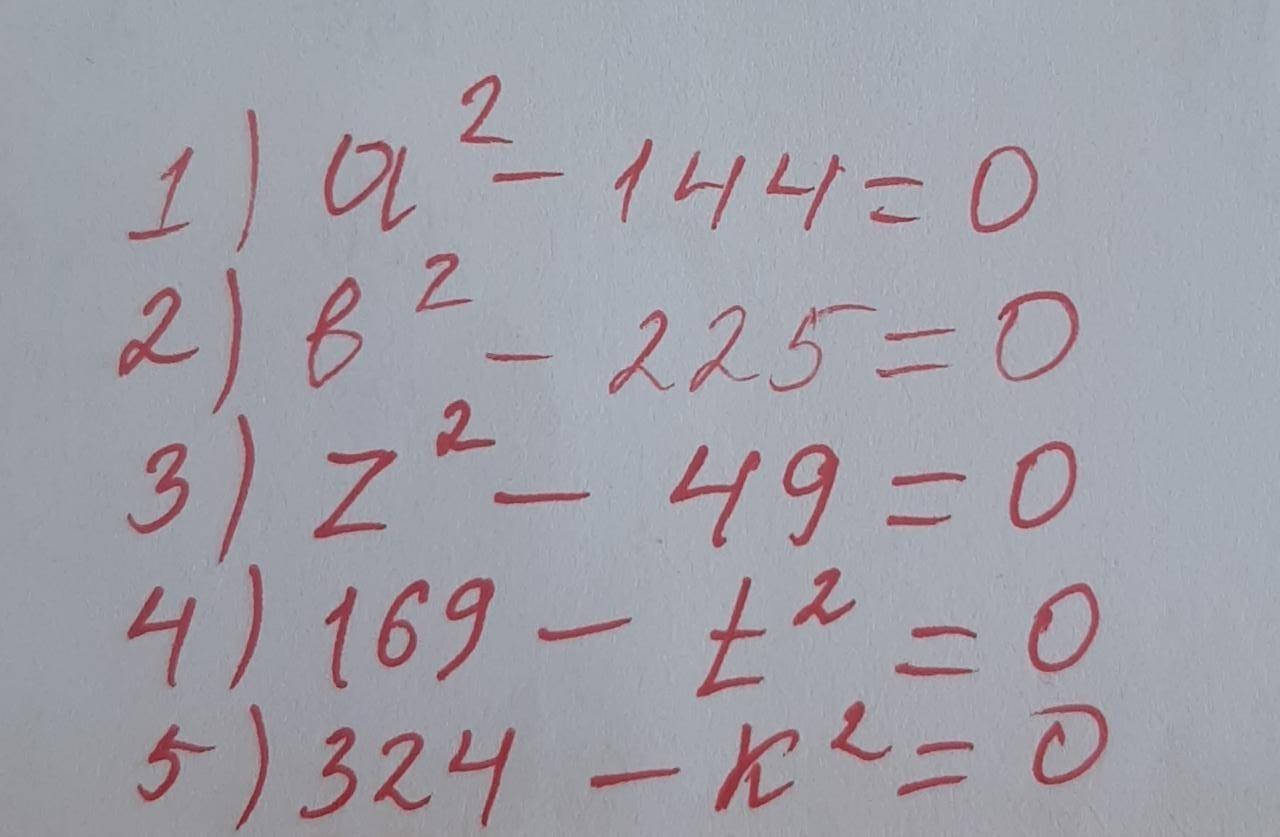 1) a² - 144 = 0
2) b² - 225 = 0
3) z² - 49 = 0
4) 169 - t² = 0
5) 324 - k² = 0